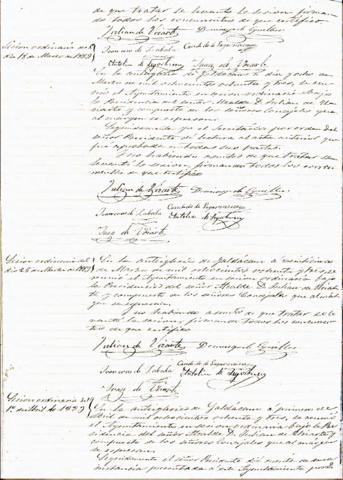 de que tratar se levantó la sesion firman-
do todos los concurrentes de que certifico.
Julian de Uriarte Domingo
Sesion ordinaria del
dia 18 de Marzo de 1883
Juan de Uriarte
En la anteiglesia de Galdácano á diez y ocho de
Marzo de mil ochocientos ochenta y tres, se reu-
nió el Ayuntamiento en sesion ordinaria bajo
la Presidencia del señor Alcalde D. Julian de U-
riarte y compuesto de los señores Concejales que
al margen se espresan.
Seguidamente yo el Secretario por orden del
señor Presidente di lectura del acta anterior que
fué aprobada en todas sus partes.
Y no habiendo asunto de que tratar se
levantó la sesion, firmando todos los concur-
rentes de que certifico
Julian de Uriarte Domingo
Juan de Uriarte
Sesion ordinaria del
En la anteiglesia de Galdácano á veinticinco
de Marzo de mil ochocientos ochenta y tres, se
reunió el Ayuntamiento en sesion ordinaria bajo
la Presidencia del señor Alcalde D. Julian de Uriar-
te y compuesto de los señores Concejales que al mar-
gen se espresan.
Y no habiendo asunto de que tratar se le-
vantó la sesion, firmando todos los concurren-
tes de que certifico
Julian de Uriarte Domingo
Juan de Uriarte
Sesion ordinaria del
1º de Abril de 1883
En la anteiglesia de Galdácano á primero de
Abril de mil ochocientos ochenta y tres, se reunió
el Ayuntamiento en sesion ordinaria bajo la Pre-
sidencia del señor Alcalde D. Julian de Uriarte y
compuesto de los señores Concejales que al margen
se espresan.
Seguidamente el señor Presidente dió cuenta de una
instancia presentada á este Ayuntamiento por